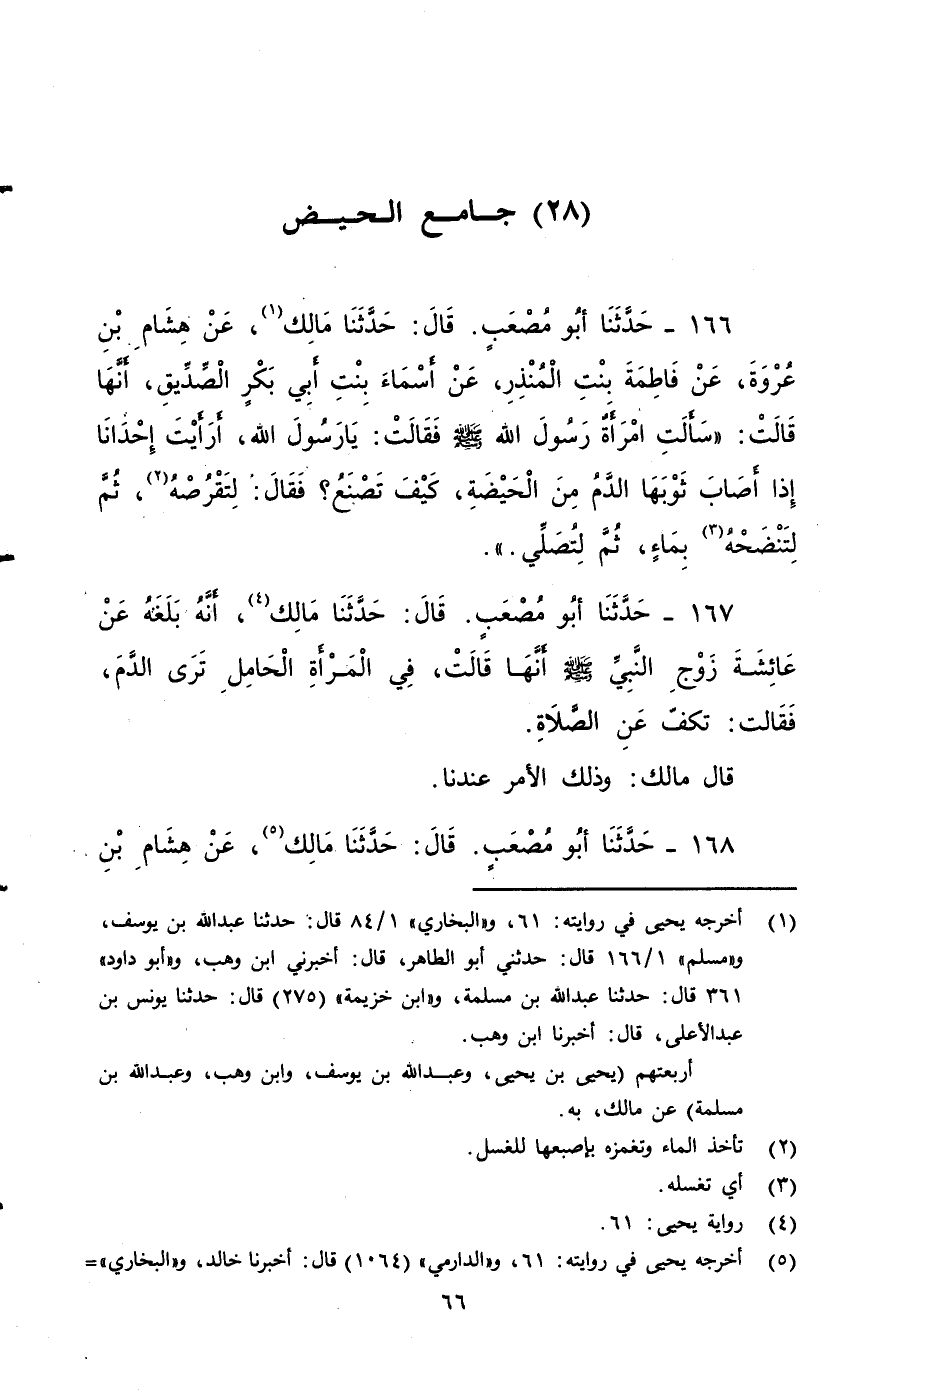 (٢٨) جـامـع الـحـيـض
١٦٦ ـ حَدَّثَنَا أبُو مُصْعَبٍ. قَالَ: حَدَّثَنَا مَالِك(١)، عَنْ هِشَامِ بْنِ
عُرْوَةَ، عَنْ فَاطِمَةَ بِنْتِ الْمُنْذِرِ، عَنْ أَسْمَاءَ بِنْتِ أَبِي بَكْرٍ الْصِّدِّيقِ، أَنَّهَا
قَالَتْ: «سَأَلَتِ امْرَأَةٌ رَسُولَ الله ﷺ فَقَالَتْ: يَارَسُولَ الله، أَرَأَيْتَ إِحْدَانَا
إِذا أَصَابَ ثَوْبَهَا الدَّمُ مِنَ الْحَيْضَةِ، كَيْفَ تَصْنَعُ؟ فَقَالَ: لِتَقْرُصْهُ(٢)، ثُمَّ
لِتَنْضَحْهُ(٣) بِمَاءٍ، ثُمَّ لِتُصَلِّي.».
١٦٧ ـ حَدَّثَنَا أبُو مُصْعَبٍ. قَالَ: حَدَّثَنَا مَالِك(٤)، أَنَّهُ بَلَغَهُ عَنْ
عَائِشَـةَ زَوْجِ النَّبِيِّ ﷺ أَنَّهَـا قَالَتْ، فِي الْمَـرْأَةِ الْحَامِلِ تَرَى الدَّمَ،
فَقَالت: تكفّ عَنِ الصَّلَاةِ.
قال مالك: وذلك الأمر عندنا.
١٦٨ ـ حَدَّثَنَا أبُو مُصْعَبٍ. قَالَ: حَدَّثَنَا مَالِك(٥)، عَنْ هِشَامِ بْنِ
(١) أخرجه يحيى في روايته: ٦١، و«البخاري» ٨٤/١ قال: حدثنا عبدالله بن يوسف،
و«مسلم» ١٦٦/١ قال: حدثني أبو الطاهر، قال: أخبرني ابن وهب، و«أبو داود»
٣٦١ قال: حدثنا عبدالله بن مسلمة، و«ابن خزيمة» (٢٧٥) قال: حدثنا يونس بن
عبدالأعلى، قال: أخبرنا ابن وهب.
أربعتهم (يحيى بن يحيى، وعبـدالله بن يوسف، وابن وهب، وعبـدالله بن
مسلمة) عن مالك، به.
(٢) تأخذ الماء وتغمزه بإصبعها للغسل.
(٣) أي تغسله.
(٤) رواية يحيى: ٦١.
(٥) أخرجه يحيى في روايته: ٦١، و«الدارمي» (١٠٦٤) قال: أخبرنا خالد، و«البخاري»=
٦٦